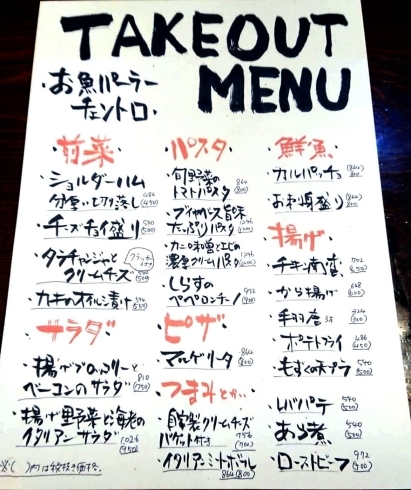 TAKEOUT
MENU
お魚パーラー
チェントロ
前菜
・ショルダーハム
分厚い切り落し 486 (450)
・チーズチョイ盛り 540 (500)
・タチャンジャと
クリームチーズ 540 (500)
・カキのオイル漬け 540 (500)
サラダ
・揚げブロッコリーと
ベーコンのサラダ 810 (750)
・揚げ野菜と海老の
イタリアンサラダ 1026 (950)
※( )内は税抜き価格。
パスタ
・旬野菜の 864
トマトパスタ (800)
・ブイヤベース旨味
たっぷりパスタ 1296 (1200)
・カニ味噌とエビの
濃厚クリームパスタ 1296 (1200)
・しらすの 972
ペペロンチーノ (900)
ピザ
・マルゲリータ 864 (800)
つまみとか…
・自家製クリームチーズ
バケット付き 756 (700)
・イタリアンミートボール
864 (800)
鮮魚
・カルパッチョ 864 (800)
・お刺身盛り (800)
揚げ
・チキン南蛮 702 (650)
・から揚げ 648 (600)
・手羽先 324 (300)
・ポテトフライ 486 (450)
・もずくの天プラ 540 (500)
・レバパテ 540 (500)
・あら煮 540 (500)
・ローストビーフ 972 (900)